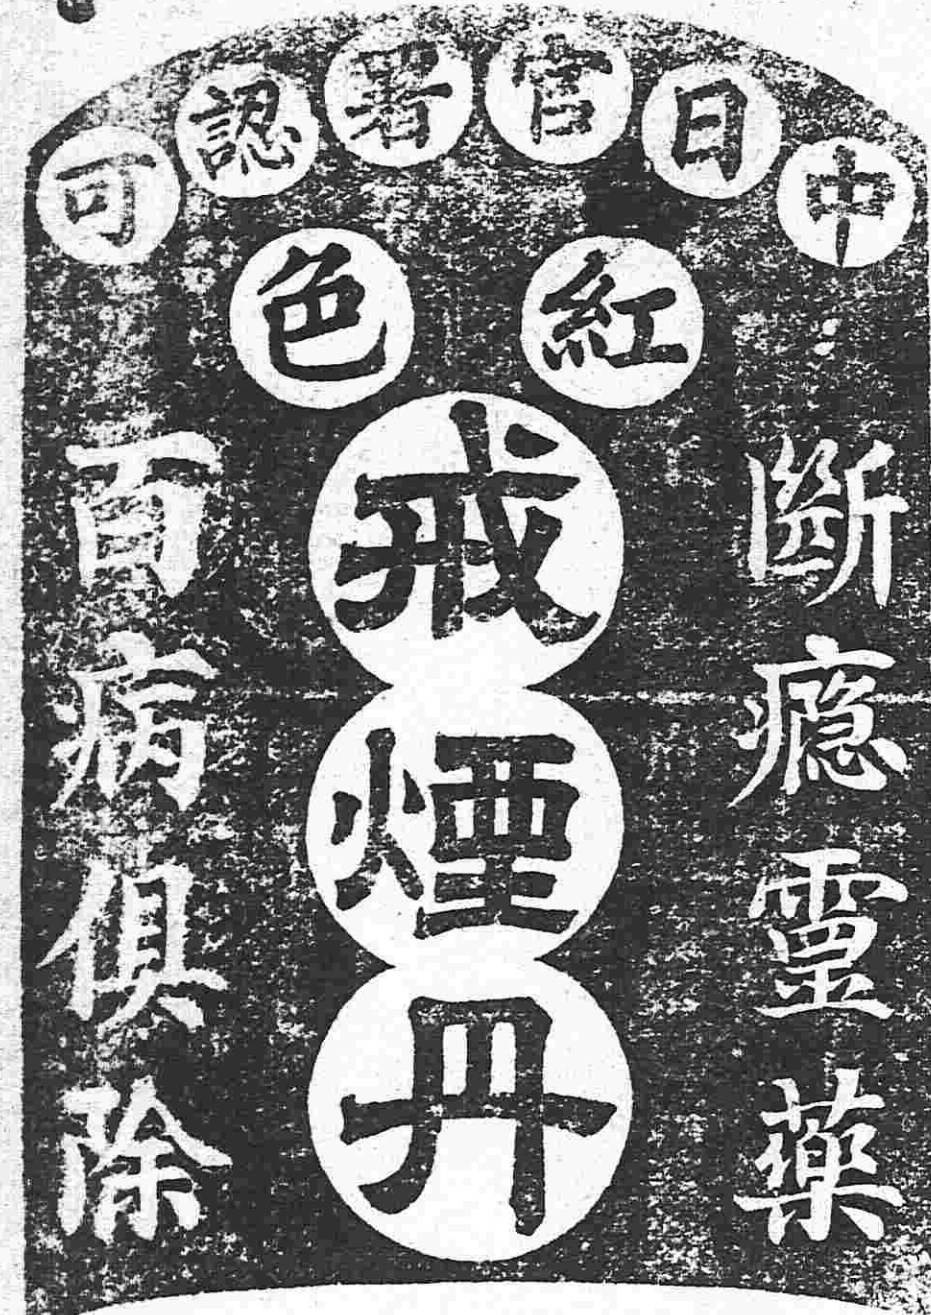 中日官署認可
紅色
戒煙丹
斷瘾靈藥
百病俱除